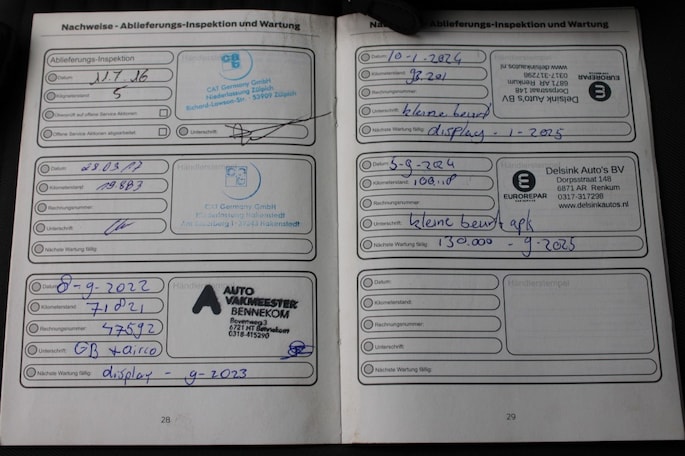 Nachweise - Ablieferungs-Inspektion und Wartung
Ablieferungs-Inspektion
Datum 11.7 16
Kilometerstand 5
Gewarcht auf offene Service-Aktionen:
Offene Service Aktionen abgearbeitet:
Unterschrift:
CAT Germany GmbH
Niederlassung Zülpich
Richard-Lawson-Str. 53909 Zülpich
Datum: 28.03.17
Kilometerstand: 19.887
Rechnungsnummer:
Unterschrift:
Nächste Wartung fällig:
Händlerstempel
CAT Germany GmbH
Datum: 8-9-2022
Kilometerstand: 71821
Rechnungsnummer: 47592
Unterschrift: GB + airco
Nächste Wartung fällig: display - 9-2023
AUTO
VAKMEESTER
BENNEKOM
Bovenweg 3
6721 HT Bennekom
0318-415290
28
Nachweise - Ablieferungs-Inspektion und Wartung
Datum: 10-1-2024
Kilometerstand: 93.201
Rechnungsnummer:
Unterschrift: kleine beurt
Nächste Wartung fällig: display - 1-2025
Delsink Auto's BV
Dorpsstraat 148
6871 AR Renkum
0317-317298
www.delsinkautos.nl
EUROREPAR
Datum: 5-9-2024
Kilometerstand: 100.118
Rechnungsnummer:
Unterschrift: kleine beurt + apk
Nächste Wartung fällig: 130.000 - 9-2025
EUROREPAR
Delsink Auto's BV
Dorpsstraat 148
6871 AR Renkum
0317-317298
www.delsinkautos.nl
Datum:
Kilometerstand:
Rechnungsnummer:
Unterschrift:
Nächste Wartung fällig:
Händlerstempel
29